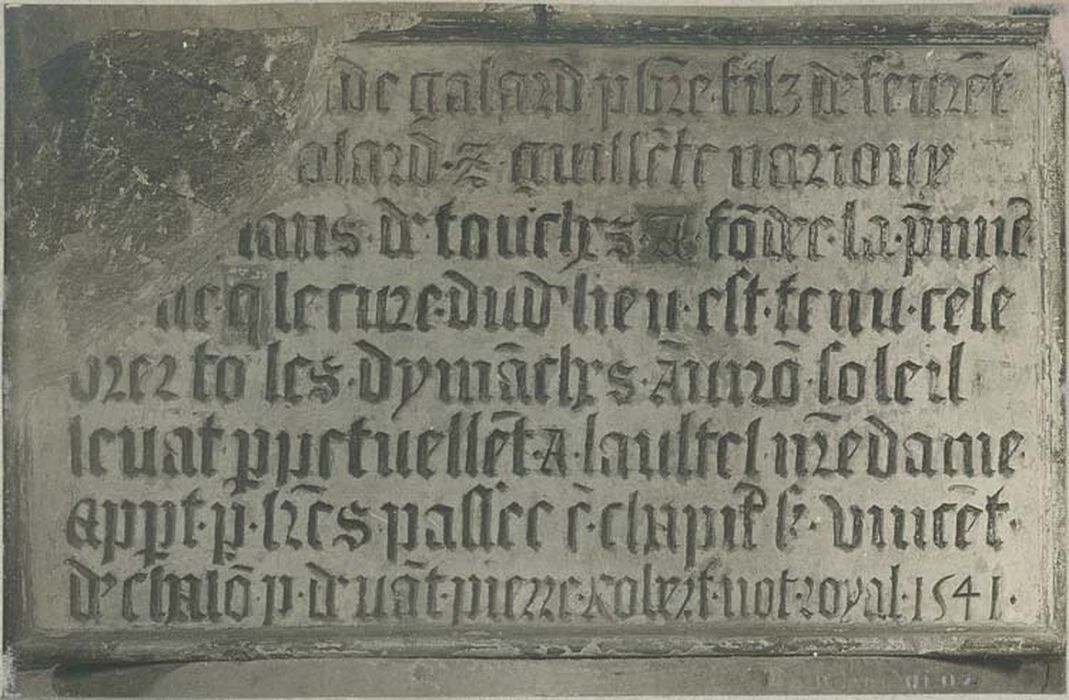 de galard pbr̄e filz de feu reñet
alard · z · guillēte narioux
ians · de touches · A fōdee · la · p̄mie
q̄ le cure · dud lieu · est · tenu · cele
brer to les · dymāches · Āuirō · soleil
leuāt ppetuellēt · A · laultel nr̄e dame
Appt · p̄ · lr̄es passee ē · chapitr̄ sᵗ · vincēt ·
de chalō · p · deuāt · pierre · Robert · not · royal · 1541 ·